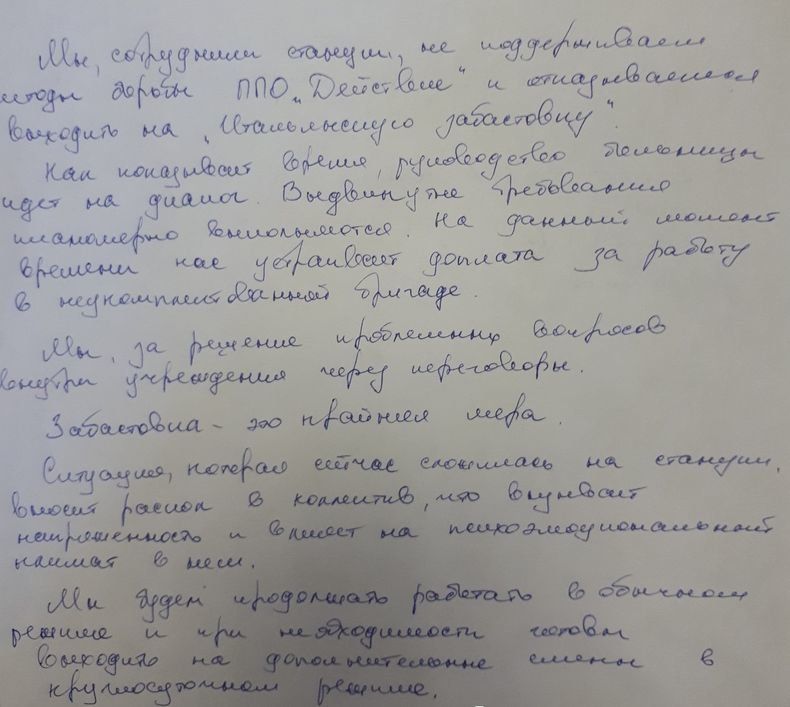 Мы, сотрудники станции, не поддерживаем
методы борьбы ППО „Действие" и отказываемся
выходить на „Итальянскую забастовку".
Как показывает время, руководство больницы
идет на диалог. Выдвинутые требования
планомерно выполняются. На данный момент
времени нас устраивает доплата за работу
в неукомплектованной бригаде.
Мы, за решение проблемных вопросов
внутри учреждения через переговоры.
Забастовка - это крайняя мера.
Ситуация, которая сейчас сложилась на станции,
вносит раскол в коллектив, что
напряженность и влияет на психоэмоциональный
климат в нем.
Мы будем продолжать работать в обычном
режиме и при необходимости готовы
выходить на дополнительные смены в
круглосуточном режиме.